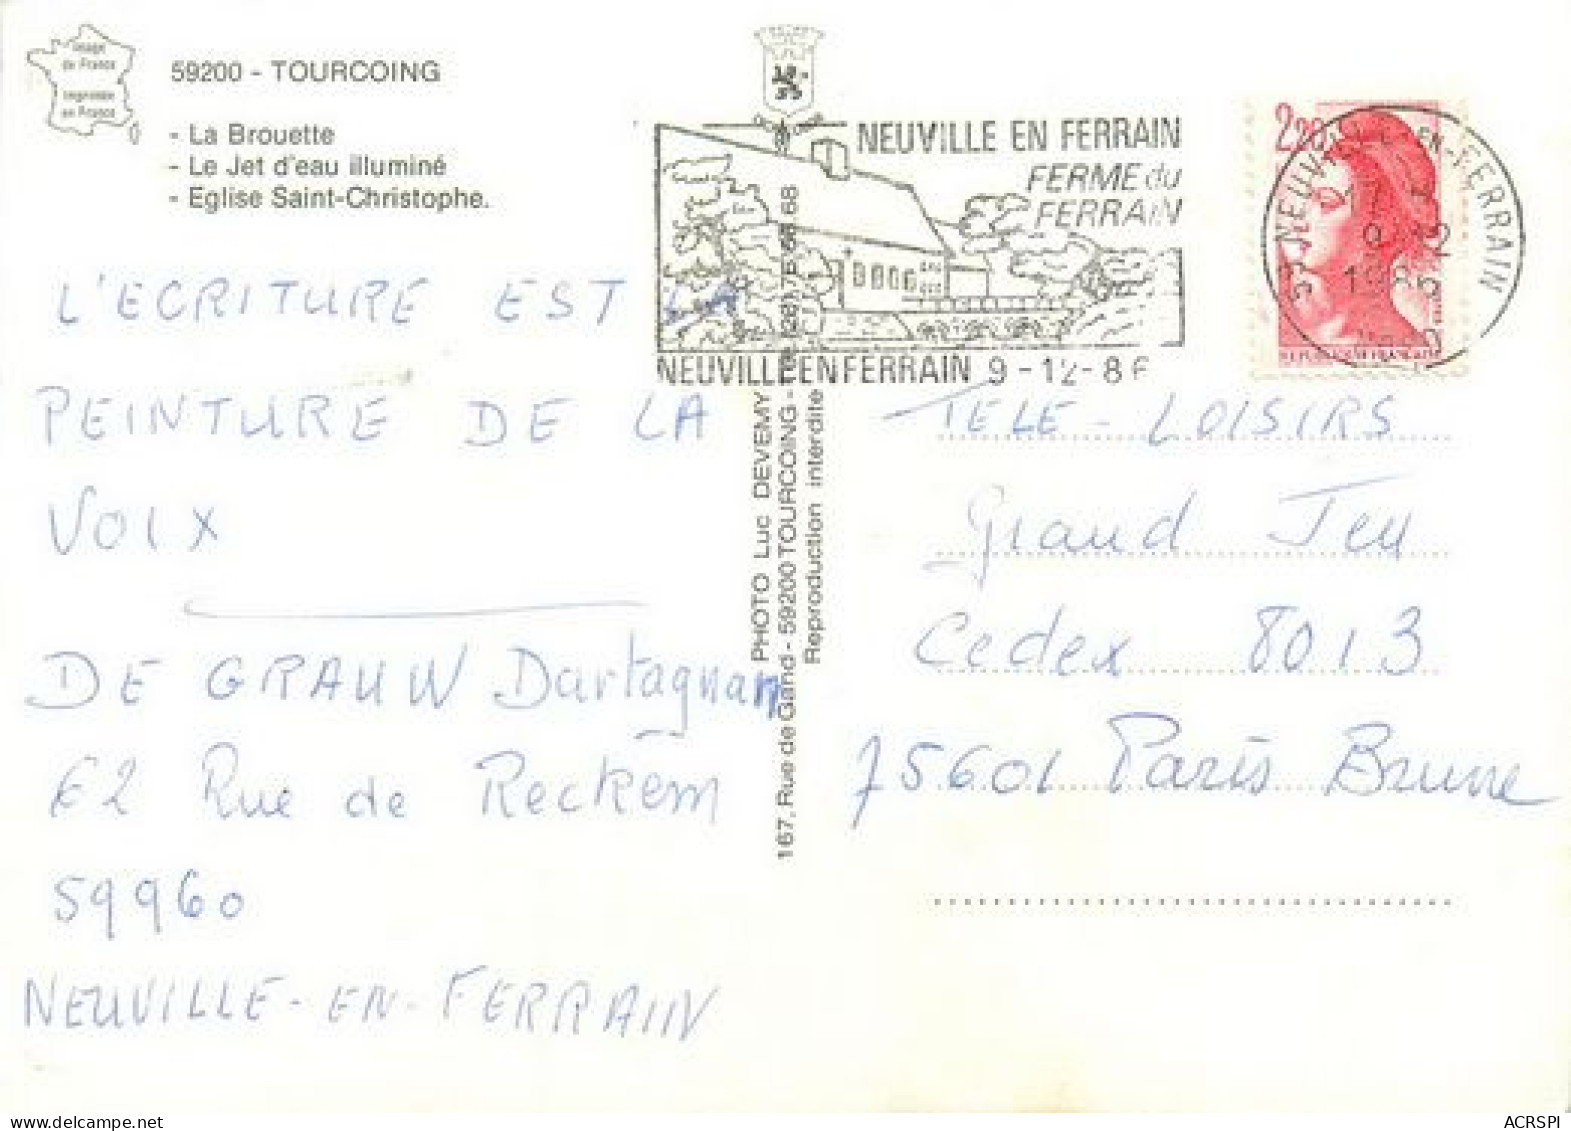 Image
de France
Imprimée
en France
59200 - TOURCOING
- La Brouette
- Le Jet d'eau illuminé
- Eglise Saint-Christophe.
NEUVILLE EN FERRAIN
FERME du
FERRAIN
NEUVILLE EN FERRAIN 9-12-86
2,20
59 NEUVILLE-EN-FERRAIN
9 12
1986
REPUBLIQUE FRANÇAISE
L'ECRITURE EST LA
PEINTURE DE LA
VOIX
DE GRAUW Dartagnan
62 Rue de Reckem
59960
NEUVILLE-EN-FERRAIN
PHOTO Luc DEVEMY
167, Rue de Gand - 59200 TOURCOING -
Reproduction interdite
TELE-LOISIRS
Grand Jeu
Cedex 8013
75601 Paris Brune
ACRSPI